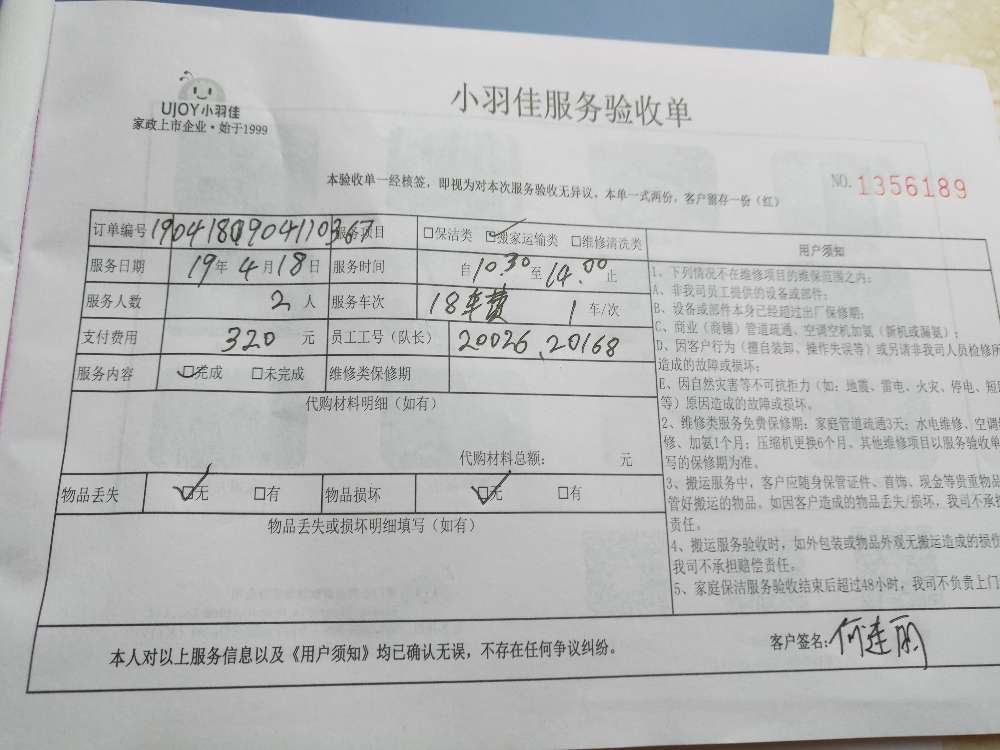 UJOY小羽佳
家政上市企业·始于1999
小羽佳服务验收单
本验收单一经核签，即视为对本次服务验收无异议，本单一式两份，客户留存一份（红）
NO. 1356189
订单编号 19041809041103 服务项目 □保洁类 ☑搬家运输类 □维修清洗类
服务日期 19年4月18日 服务时间 自10:30至14:00止
服务人数 2人 服务车次 18车费 1车/次
支付费用 320元 员工工号（队长） 20026、20168
服务内容 ☑完成 □未完成 维修类保修期
代购材料明细（如有）
代购材料总额： 元
物品丢失 ☑无 □有 物品损坏 ☑无 □有
物品丢失或损坏明细填写（如有）
用户须知
1、下列情况不在维修项目的维保范围之内：
A、非我司员工提供的设备或部件；
B、设备或部件本身已经超过出厂保修期；
C、商业（商铺）管道疏通、空调空机加氨（新机或漏氨）；
D、因客户行为（擅自装卸、操作失误等）或另请非我司人员检修所
造成的故障或损坏；
E、因自然灾害等不可抗拒力（如：地震、雷电、火灾、停电、短
等）原因造成的故障或损坏。
2、维修类服务免费保修期：家庭管道疏通3天；水电维修、空调
修、加氨1个月；压缩机更换6个月。其他维修项目以服务验收单
写的保修期为准。
3、搬运服务中，客户应随身保管证件、首饰、现金等贵重物品
管好搬运的物品。如因客户造成的物品丢失/损坏，我司不承担
责任。
4、搬运服务验收时，如外包装或物品外观无搬运造成的损伤
我司不承担赔偿责任。
5、家庭保洁服务验收结束后超过48小时，我司不负责上门
本人对以上服务信息以及《用户须知》均已确认无误，不存在任何争议纠纷。
客户签名：何连丽